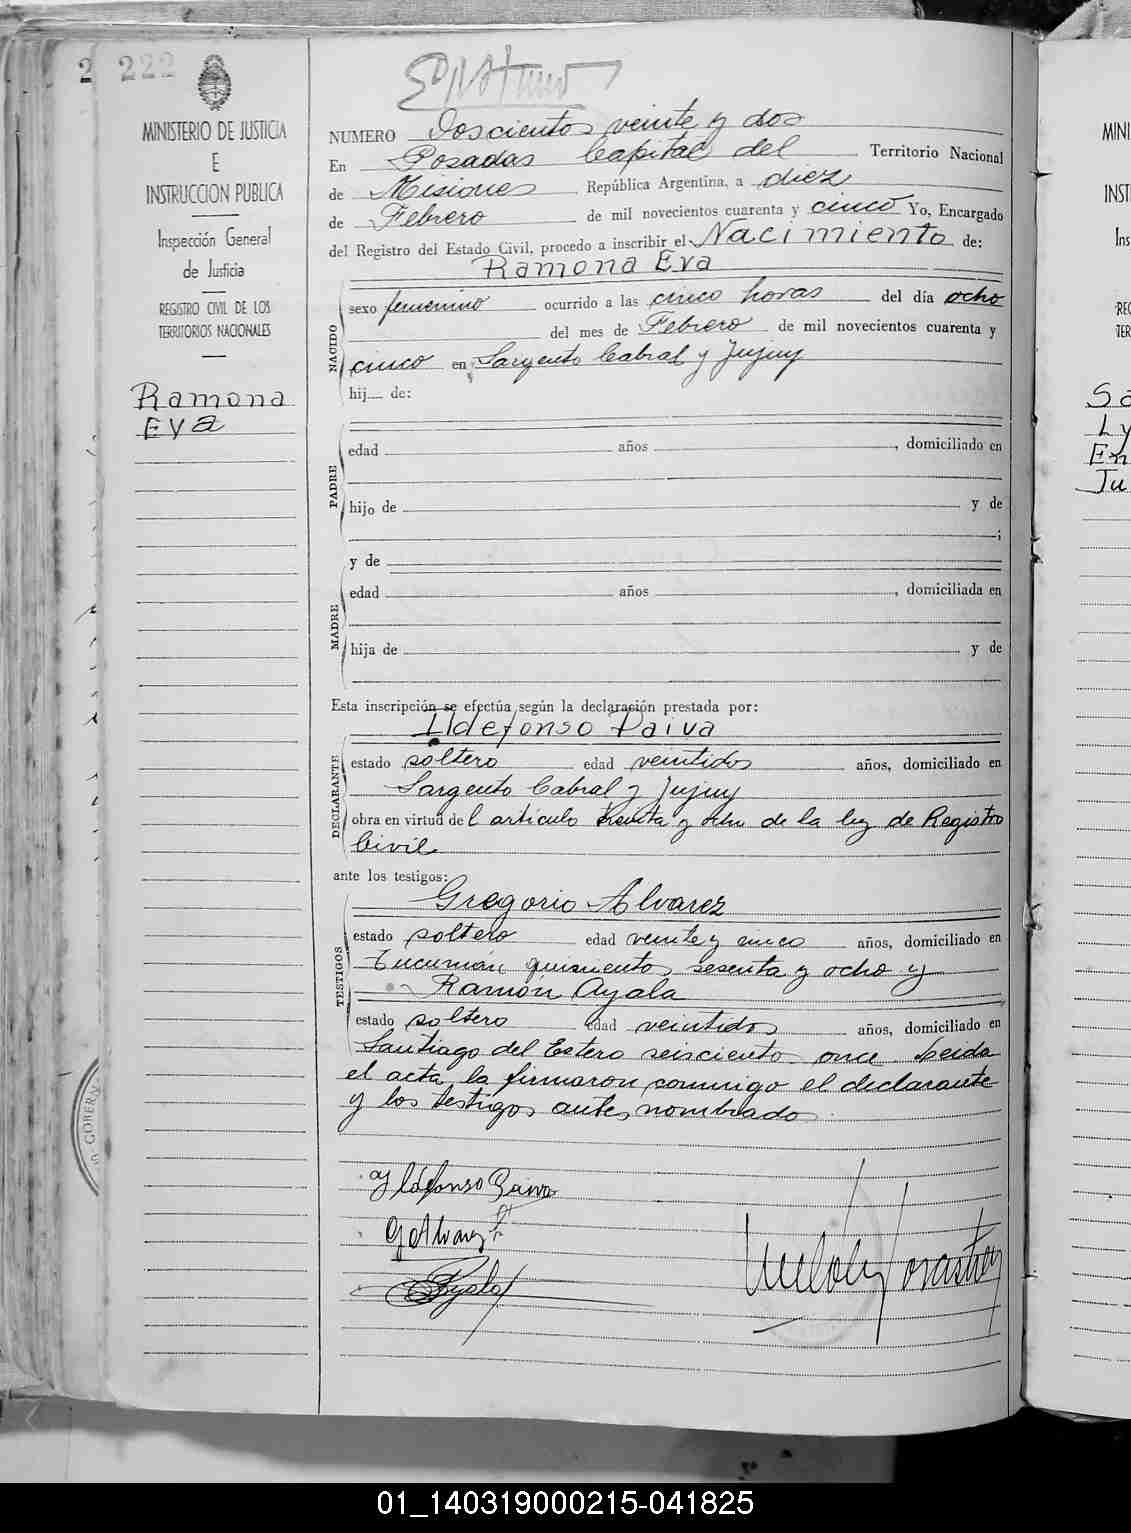 222
MINISTERIO DE JUSTICIA
E
INSTRUCCION PUBLICA
Inspección General
de Justicia
REGISTRO CIVIL DE LOS
TERRITORIOS NACIONALES
Ramona
Eva
NUMERO Doscientos veinte y dos
En Posadas Capital del Territorio Nacional
de Misiones República Argentina, a diez
de Febrero de mil novecientos cuarenta y cinco Yo, Encargado
del Registro del Estado Civil, procedo a inscribir el Nacimiento de:
Ramona Eva
NACIDO
sexo femenino ocurrido a las cinco horas del día ocho
del mes de Febrero de mil novecientos cuarenta y
cinco en Sargento Cabral y Jujuy
hij de:
PADRE
edad años , domiciliado en
hijo de y de
;
y de
MADRE
edad años , domiciliada en
hija de y de
Esta inscripción se efectúa según la declaración prestada por:
Ildefonso Paiva
DECLARANTE
estado soltero edad veintidos años, domiciliado en
Sargento Cabral y Jujuy
obra en virtud del artículo treinta y ocho de la ley de Registro
Civil
ante los testigos:
Gregorio Alvarez
TESTIGOS
estado soltero edad veinte y cinco años, domiciliado en
Tucumán quinientos sesenta y ocho y
Ramón Ayala
estado soltero edad veintidos años, domiciliado en
Santiago del Estero seiscientos once. Leida
el acta la firmaron conmigo el declarante
y los testigos antes nombrados.
Ildefonso Paiva
G Alvarez
Ayala
GOBERN
MINI
INST
Ins
REG
TER
Sa
Ly
En
Ju
01_140319000215-041825